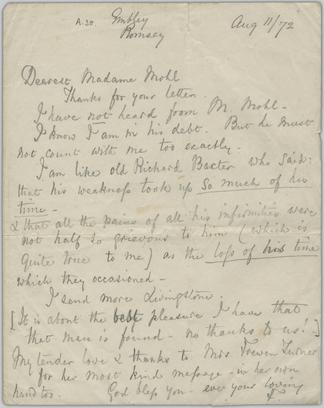 A.30.
Embley
Romsey
Aug 11/72
Dearest Madame Mohl
Thanks for your letter.
I have not heard from M. Mohl -
I know I am in his debt. But he must
not count with me too exactly.
I am like old Richard Baxter who said:
that his weakness took up so much of his
time -
& that all the pains of all his infirmities were
not half so grievous to him (which is
quite true to me) as the loss of his time
which they occasioned -
I send more Livingstone:
[It is about the best pleasure I have that
that man is found - no thanks to us!]
My tender love & thanks to Mrs.
for her most kind message - in her own
hand too. God bless you - ever your loving
F